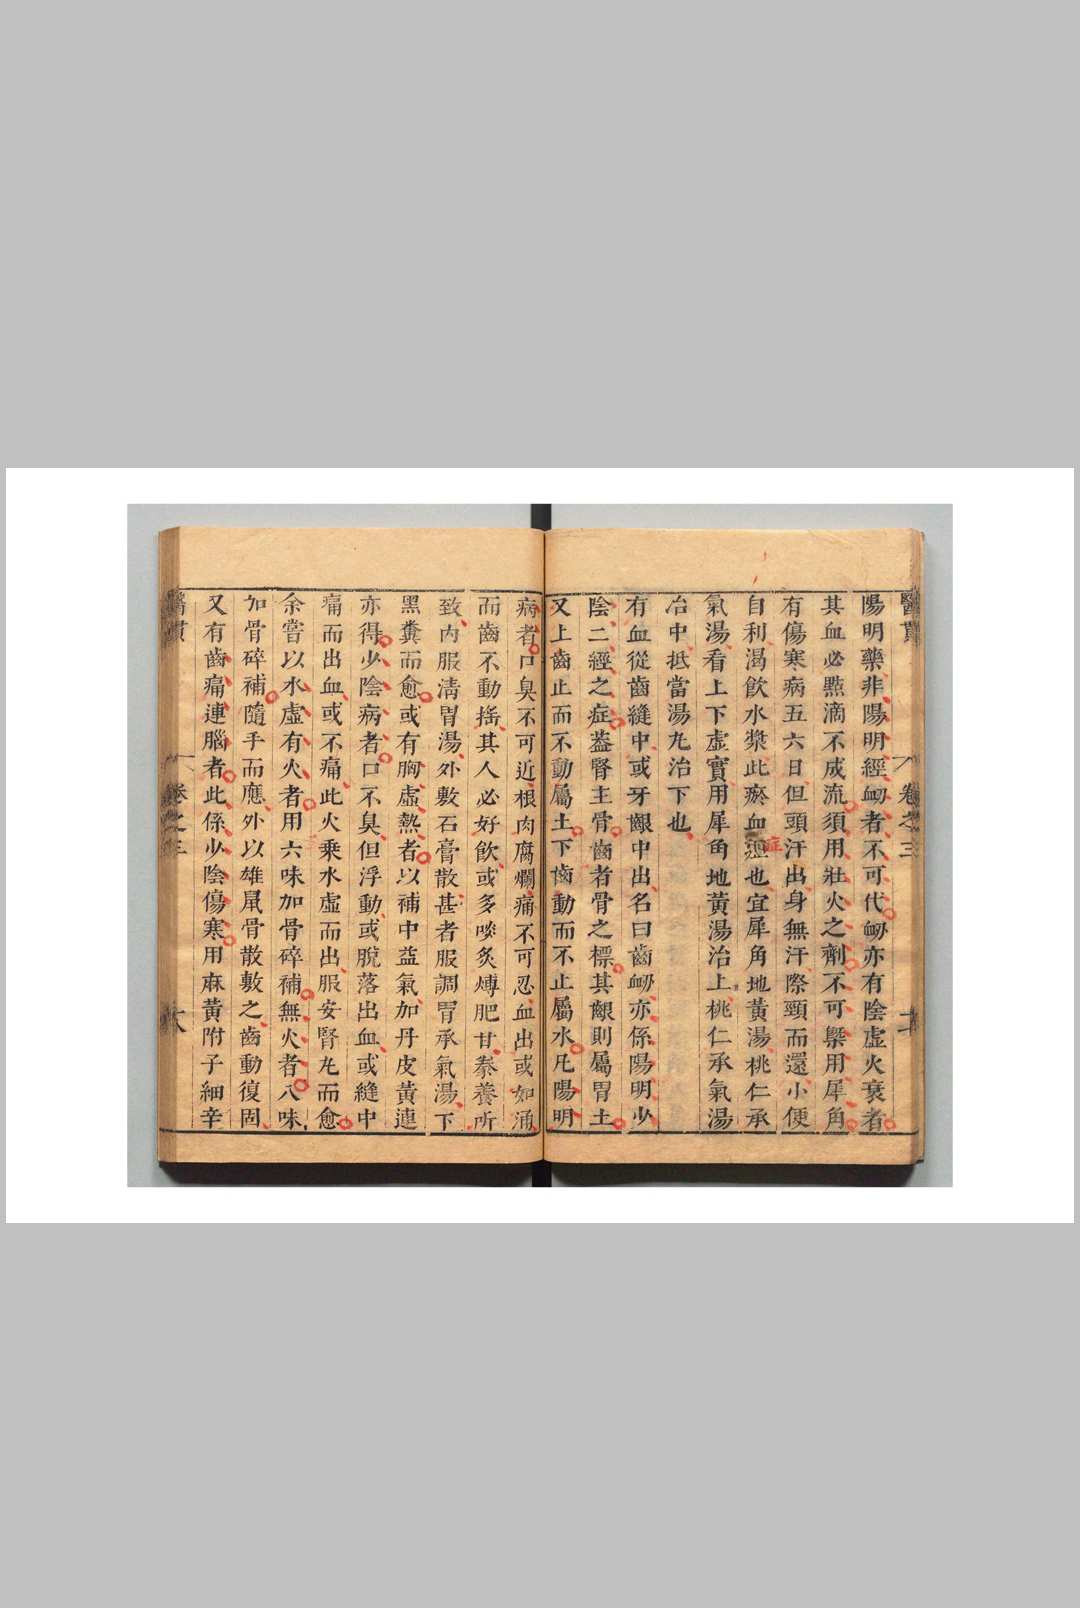 醫貫
卷之三
陽明藥非陽明經衂者不可代衂亦有陰虛火衰者
其血必點滴不成流須用壯火之劑不可槩用犀角
有傷寒病五六日但頭汗出身無汗際頸而還小便
自利渴飲水漿此瘀血症也宜犀角地黃湯桃仁承
氣湯看上下虛實用犀角地黃湯治上桃仁承氣湯
冶中抵當湯丸治下也
有血從齒縫中或牙齦中出名曰齒衂亦係陽明少
陰二經之症葢腎主骨齒者骨之標其齦則屬胃土
又上齒止而不動屬土下齒動而不止屬水凡陽明
病者口臭不可近根肉腐爛痛不可忍血出或如涌
而齒不動搖其人必好飲或多啖炙煿肥甘豢養所
致內服清胃湯外敷石膏散甚者服調胃承氣湯下
黑糞而愈或有胸虛熱者以補中益氣加丹皮黃連
亦得少陰病者口不臭但浮動或脫落出血或縫中
痛而出血或不痛此火乘水虛而出服安腎丸而愈
余嘗以水虛有火者用六味加骨碎補無火者八味
加骨碎補隨手而應外以雄鼠骨散敷之齒動復固
又有齒痛連腦者此係少陰傷寒用麻黃附子細辛
醫貫
卷之三